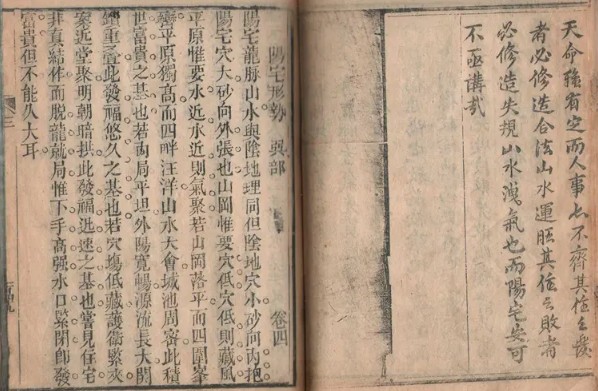 天命雖有定而人事不齊其之發
者必修造合法山水運旺其之敗者
必修造失規山水洩氣也而陽宅安可
不亟講哉
陽宅形勢 部 卷四
陽宅龍脉山水與陰地理同但陰地穴小砂向內抱
陽宅穴大砂向外張也山岡惟要穴低穴低則藏風
平原惟要水近水近則氣聚若山岡落平而四圍峯
齊平原獨高而四畔汪洋山水大會城池周密此積
世富貴之基也若局平坦外陽寬暢源流長大開
鎖重叠此發福悠久之基也若穴塲低藏護衛緊夾
案近堂聚明朝暗拱此發福迅速之基也嘗見住宅
非真結作而脫龍就局惟下手高强水口緊閉卽發
富貴但不能久大耳